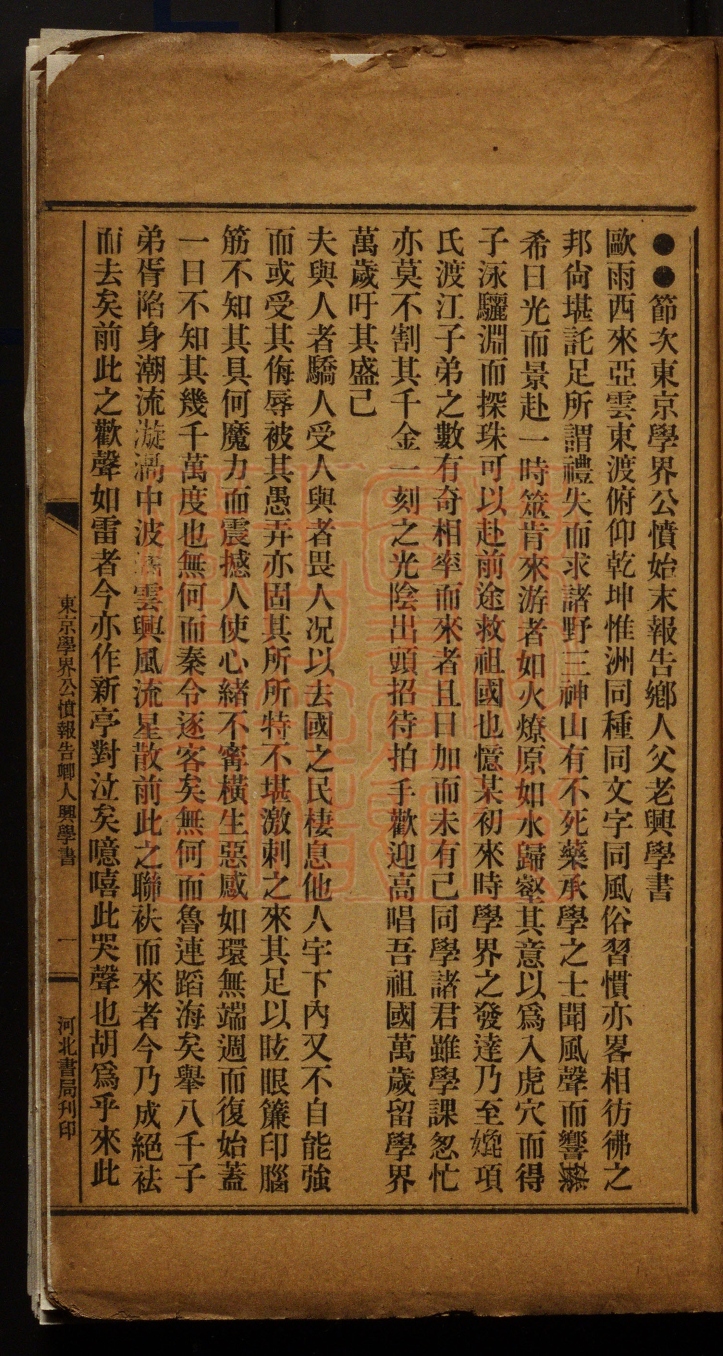 ●●節次東京學界公憤始末報告鄉人父老興學書
歐雨西來亞雲東渡俯仰乾坤惟洲同種同文字同風俗習慣亦畧相彷彿之
邦尙堪託足所謂禮失而求諸野三神山有不死藥承學之士聞風聲而響
希日光而景赴一時簦肯來游者如火燎原如水歸壑其意以爲入虎穴而得
子泳驪淵而探珠可以赴前途救祖國也憶某初來時學界之發達乃至媲項
氏渡江子弟之數有奇相率而來者且日加而未有已同學諸君雖學課怱忙
亦莫不割其千金一刻之光陰出頭招待拍手歡迎高唱吾祖國萬歲留學界
萬歲吁其盛已
夫與人者驕人受人與者畏人况以去國之民棲息他人宇下內又不自能強
而或受其侮辱被其愚弄亦固其所所特不堪激刺之來其足以眩眼簾印腦
筋不知其具何魔力而震撼人使心緒不寗橫生惡感如環無端週而復始蓋
一日不知其幾千萬度也無何而秦令逐客矣無何而魯連蹈海矣舉八千子
弟胥陷身潮流漩渦中波雲興風流星散前此之聯袂而來者今乃成絕祛
而去矣前此之歡聲如雷者今亦作新亭對泣矣噫嘻此哭聲也胡爲乎來此
東京學界公憤報告鄉人興學書 一 河北書局刊印